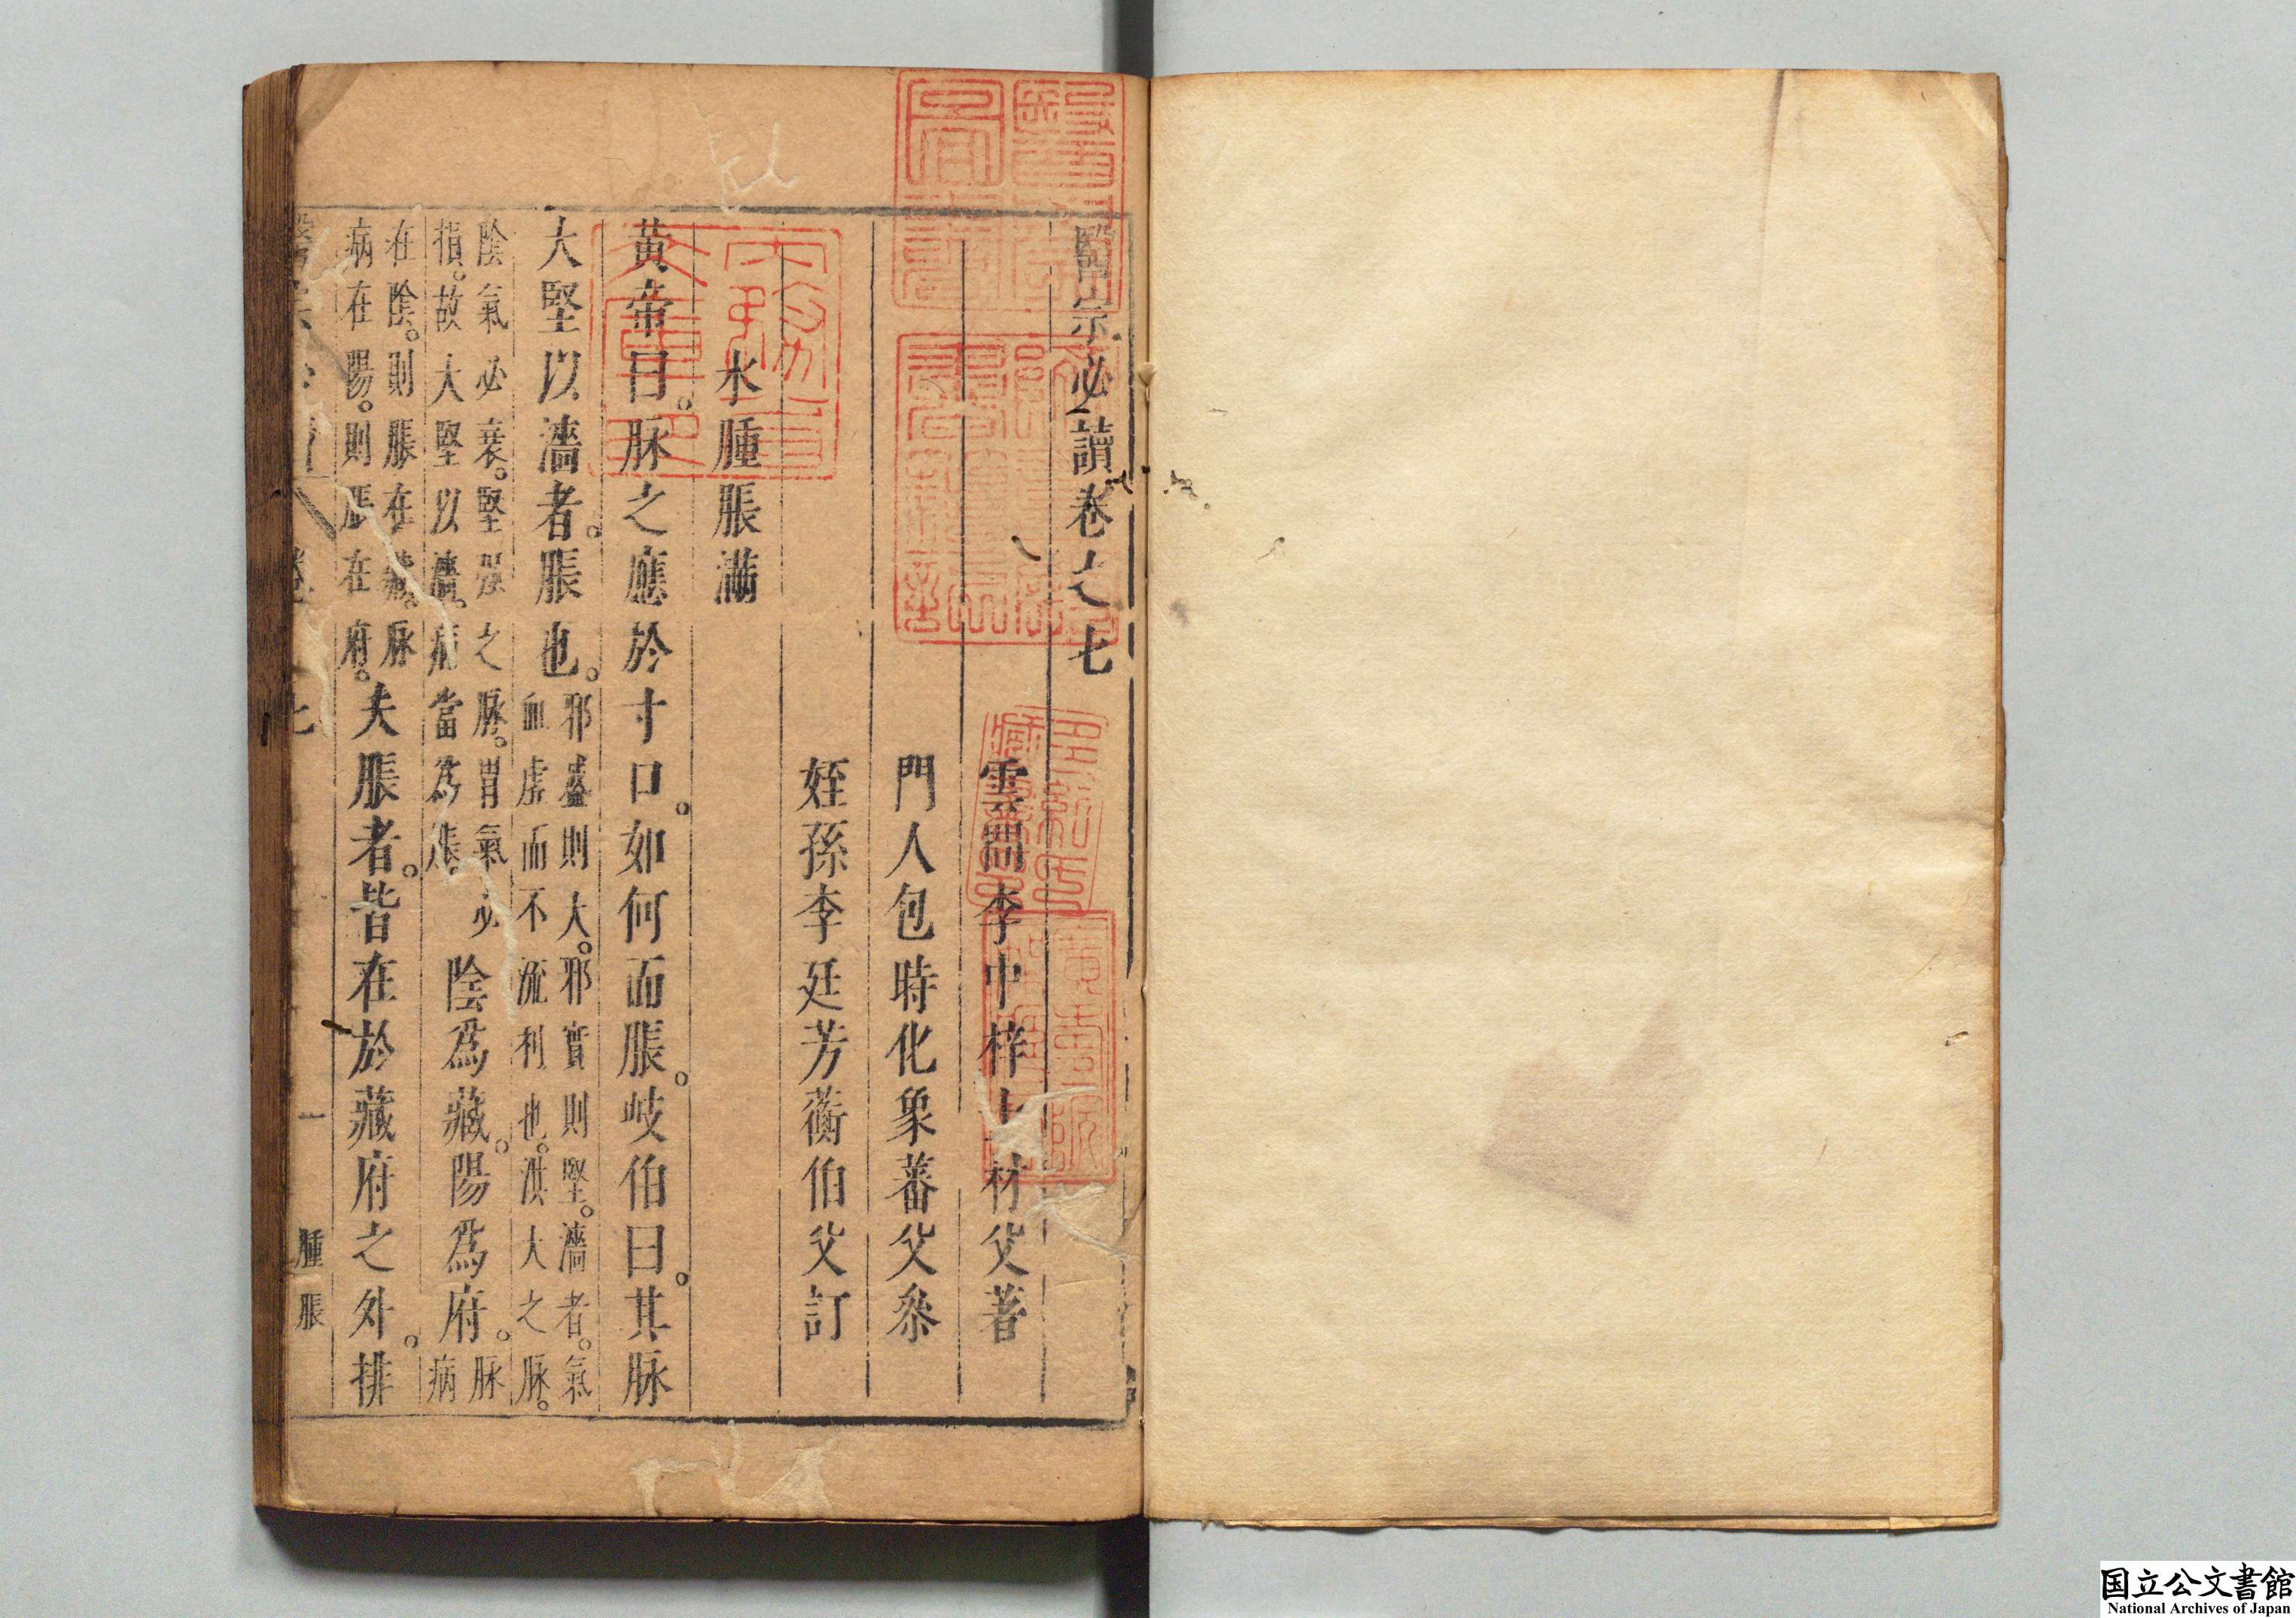 醫宗必讀卷之七
雲間李中梓士材父著
門人包時化象蕃父叅
姪孫李廷芳蘅伯父訂
水腫脹滿
黃帝曰。脉之應於寸口。如何而脹。岐伯曰。其脉
大堅以濇者。脹也。邪盛則大。邪實則堅。濇者。氣
血虛而不流利也。洪大之脉。
陰氣必衰。堅强之脉。胃氣必
損。故大堅以濇。病當為脹。陰爲藏。陽爲府。脉病
在陰。則脹在藏。脉
病在陽。則脹在府。夫脹者。皆在於藏府之外。排
卷七 一 腫脹
国立公文書館
National Archives of Japan